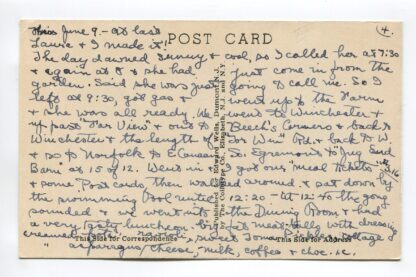 This June 9 - at last
4.
Laura & I made it!
POST CARD
The day dawned sunny & cool, so I called her at 7:30
& again at 8 & she had just come in from the
garden. Said she was just going to call me. So I
left at 9:30, got gas & went up to the Farm
& she was all ready. We went to Winchester &
up past "Far View" & out to Beech's Corners & back to
Winchester & the length of Rd. & back
& so to Norfolk & Canaan to Egremont to "Jug End
Barn" at 15 of 12. Went in & got our "meal tickets"
& some Post Cards, then walked around & sat down by
the swimming Pool until 12:20 - at 12 the gong
sounded & we went into the Dining Room & had
a very tasty luncheon, meat with dressing
creamed sweet Pickle, cottage
asparagus, cheese, milk, coffee & choc. ic.
This Side for Correspondence
This Side for Address
Published by Edward Welsh, Dumont, N.J.
Elizabeth, N.J. and N.Y.